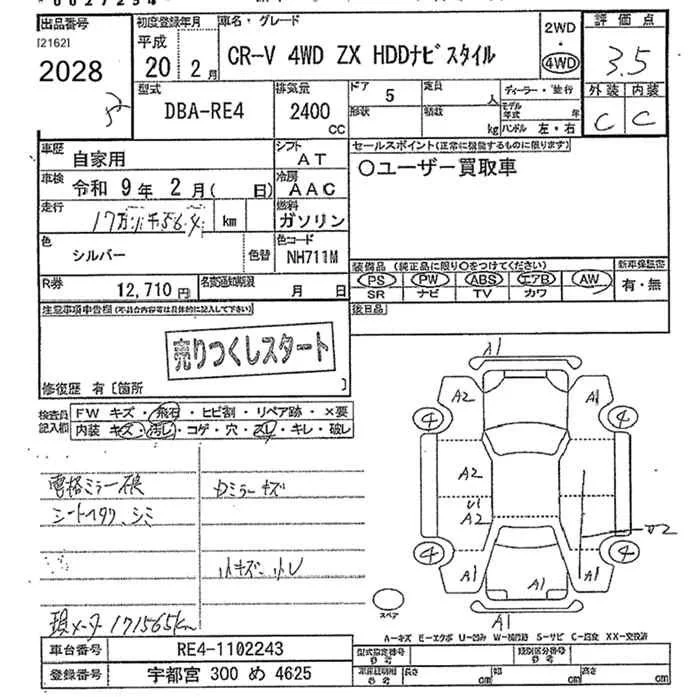 出品番号 初度登録年月 車名・グレード
[2162] 平成
2028 20 2 月 CR-V 4WD ZX HDDナビスタイル
2WD
・
4WD
評価点
3.5
外装 内装
C C
型式 排気量 ドア 定員 ディーラー・並行
DBA-RE4 2400 CC 5 人
形状 積載 kg モデル年式 年
ハンドル 左・右
車歴 自家用 シフト AT
セールスポイント(正常に機能するものに限ります)
○ユーザー買取車
車検 令和 9 年 2 月( 日) 冷房 AAC
走行 km 燃料 ガソリン
色 シルバー 色替 色コード NH711M
装備品 (純正品に限り○をつけてください) 新車保証書
PS PW ABS エアB AW 有・無
SR ナビ TV カワ
R券 12,710円 名変通知期限 月 日
後日品
注意事項申告欄(不具合内容等は具体的に記入して下さい)
売りつくしスタート
修復歴 有〔箇所 〕
検査員記入欄 FW キズ・飛石・ヒビ割・リペア跡・×要
内装 キズ・汚レ・コゲ・穴・スレ・キレ・破レ
シートヘタリ、シミ
小キズ、小
現メーター171565km
A1
A2 A1
4 4
A2
U1
A2
4 4
A1 A1 A1
A1
スペア
A-キズ E-エクボ U-凹み S-サビ C-腐食 XX-交換済
車台番号 RE4-1102243
登録番号 宇都宮 300 め 4625
型式指定番号 参考 類別区分番号 参考
長さ cm 幅 cm 高さ cm